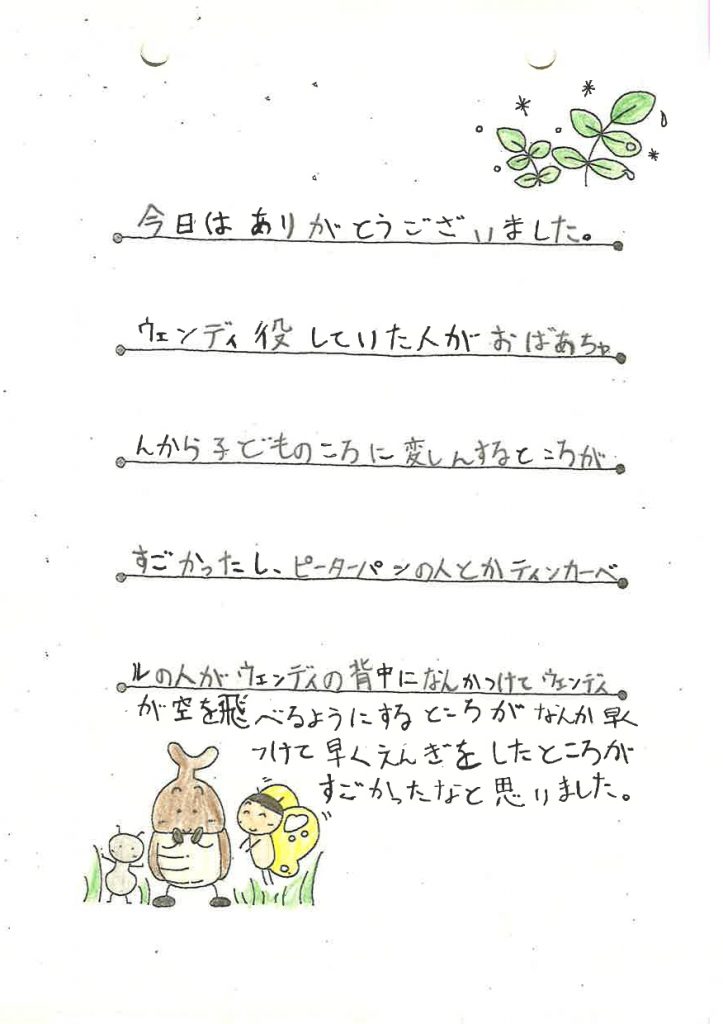 今日はありがとうございました。
ウェンディ役していた人がおばあちゃ
んから子どものころに変しんするところが
すごかったし、ピーターパンの人とかティンカーベ
ルの人がウェンディの背中になんかつけてウェンディ
が空を飛べるようにするところがなんか早く
つけて早くえんぎをしたところが
すごかったなと思いました。